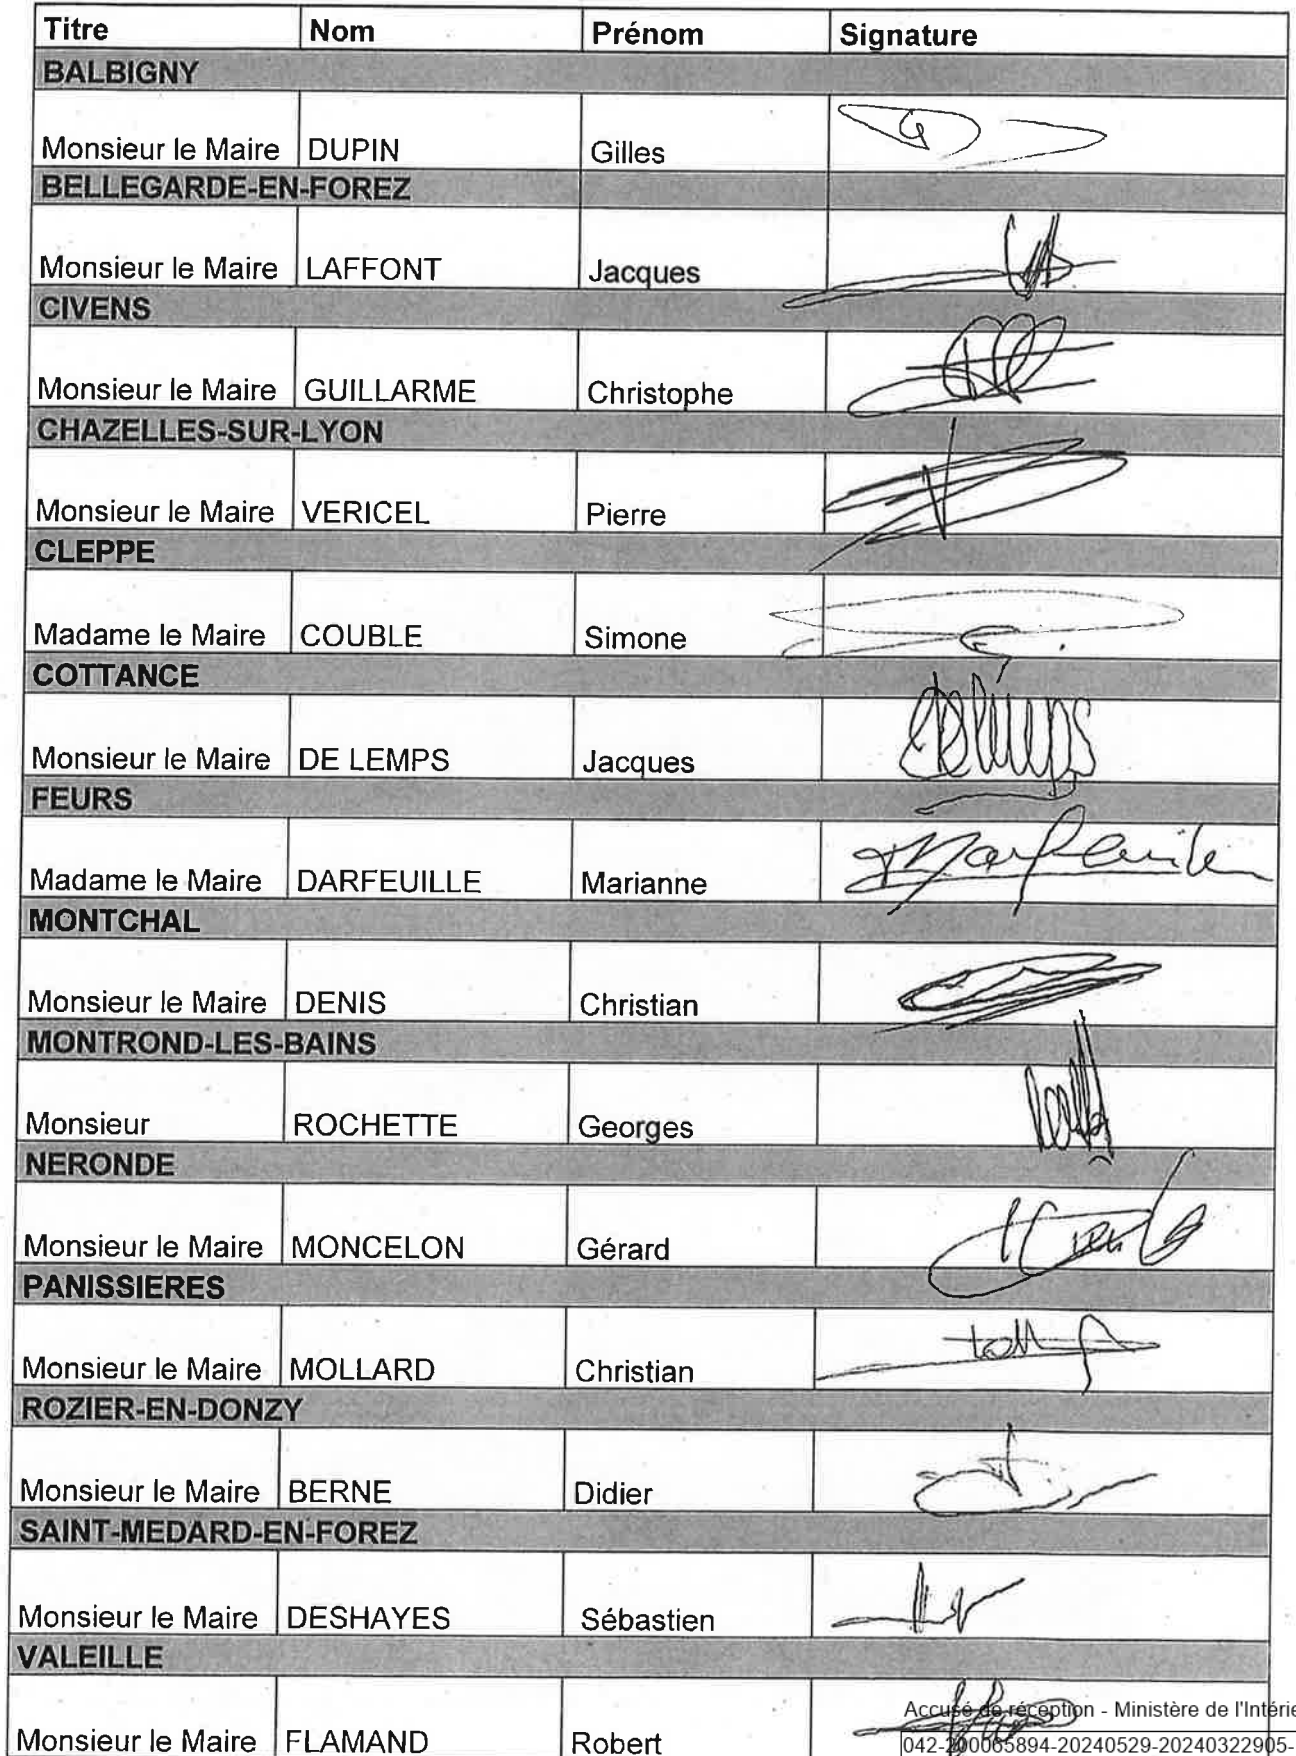 Titre Nom Prénom Signature
BALBIGNY
Monsieur le Maire DUPIN Gilles
BELLEGARDE-EN-FOREZ
Monsieur le Maire LAFFONT Jacques
CIVENS
Monsieur le Maire GUILLARME Christophe
CHAZELLES-SUR-LYON
Monsieur le Maire VERICEL Pierre
CLEPPE
Madame le Maire COUBLE Simone
COTTANCE
Monsieur le Maire DE LEMPS Jacques
FEURS
Madame le Maire DARFEUILLE Marianne
MONTCHAL
Monsieur le Maire DENIS Christian
MONTROND-LES-BAINS
Monsieur ROCHETTE Georges
NERONDE
Monsieur le Maire MONCELON Gérard
PANISSIERES
Monsieur le Maire MOLLARD Christian
ROZIER-EN-DONZY
Monsieur le Maire BERNE Didier
SAINT-MEDARD-EN-FOREZ
Monsieur le Maire DESHAYES Sébastien
VALEILLE
Monsieur le Maire FLAMAND Robert
Accusé de réception - Ministère de l'Intérie
042-200065894-20240529-20240322905-